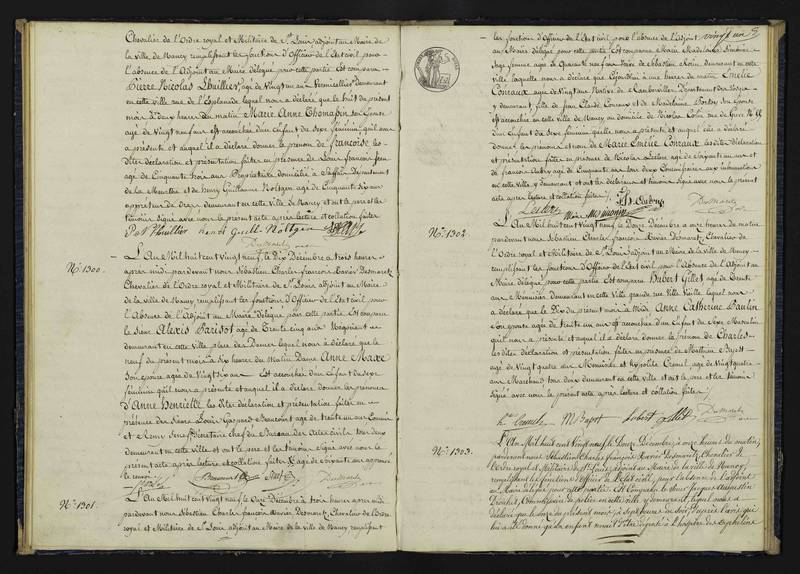 Chevalier de l'Ordre royal et Militaire de St Louis adjoint au Maire de
la ville de Nancy remplissant les fonctions d'Officier de l'Etat civil pour
l'absence de l'Adjoint au Maire délégué pour cette partie Est comparu
Pierre Nicolas Lhuillier, age de vingt neuf ans Vermicellier demeurant
en cette ville rue de l'Esplanade lequel nous a déclaré que le huit du présent
mois à deux heures du matin Marie Anne Thomassin son Epouse
age de vingt neuf ans est accouchée d'un Enfant du Sexe féminin, qu'il nous
a présenté et auquel il a déclaré donner le prenom de françoise les
dites déclaration et présentation faites en présence de Louis françois
age de Cinquante trois ans Propriétaire domicilié à Département
de la Meurthe et de henry Guillaume Noltgen age de Cinquante six ans
appreteur de draps demeurant en cette ville de Nancy et ont le pere et les
témoins signé avec nous le présent acte après lecture et collation faites
Lhuillier henri Guill. Nöltgen
Desmaretz
No. 1300.
L'An Mil huit cent vingt neuf le Dix Décembre à trois heures
après midi pardevant nous Sébastien Charles François Xavier Desmaretz
Chevalier de l'Ordre royal et Militaire de St Louis adjoint au Maire
de la ville de Nancy remplissant les fonctions d'Officier de l'Etat civil pour
l'Absence de l'Adjoint au Maire délégué pour cette partie Est comparu
le Sieur Alexis Parisot age de Trente cinq ans Négociant
demeurant en cette ville place des Dames lequel nous a déclaré que le
neuf du présent mois à six heures du Matin Dame Anne Marx
son Epouse age de vingt six ans Est accouchée d'un Enfant du Sexe
féminin qu'il nous a présenté et auquel il a déclaré donner les prénoms
d'Anne Henriette les dites déclaration et présentation faites en
présence des Sieurs Louis Gaspard Beaucourt age de trente un ans
et Remy Secrétaire chef du Bureau des Actes civils tous deux
demeurant en cette ville et ont le pere et les témoins signé avec nous le
présent acte après lecture et collation faites
Desmaretz
No. 1301.
L'An Mil huit cent vingt neuf le Onze Décembre à trois heures après midi
pardevant nous Sébastien Charles françois Xavier Desmaretz Chevalier de l'Ordre
royal et Militaire de St Louis adjoint au Maire de la ville de Nancy remplissant
les fonctions d'Officier de l'Etat civil pour l'absence de l'Adjoint
au Maire délégué pour cette partie Est comparue Marie Madelaine
Sage femme age de Quarante neuf ans Epouse de Sébastien demeurant en cette
ville laquelle nous a déclaré que Cejourd'hui à une heure du matin Emélie
Conraux age de vingt ans Native de Rambervillers Département des Vosges
y demeurant fille de Jean Claude Conraux et de Madelaine son Epouse
est accouchée en cette ville de Nancy au domicile de Nicolas Colin rue de Grève No
d'un Enfant du Sexe féminin qu'elle nous a présenté et auquel elle a déclaré
donner les prénoms et nom de Marie Emélie Conraux les dites déclaration
et présentation faites en présence de Nicolas Leclerc age de Soixante un ans et
de francois Aubry age de Cinquante un ans tous deux
en cette ville y demeurant et ont les déclarante et témoins signé avec nous le présent
acte après lecture et collation faites
Leclerc Aubry Desmaretz
No. 1302.
L'An Mil huit cent vingt neuf le Douze Décembre à onze heures du matin
pardevant nous Sébastien Charles francois Xavier Desmaretz, Chevalier de
l'Ordre royal et Militaire de St Louis adjoint au Maire de la ville de Nancy
remplissant les fonctions d'Officier de l'Etat civil pour l'Absence de l'Adjoint au
Maire délégué pour cette partie Est comparu Hubert Gillet age de Trente
ans Menuisier demeurant en cette ville grande rue Ville Vieille lequel nous
a déclaré que le Dix du présent mois à Midi Anne Catherine Paulin
son Epouse age de trente un ans est accouchée d'un Enfant du Sexe Masculin
qu'il nous a présenté et auquel il a déclaré donner le prénom de Charles
les dites déclaration et présentation faites en présence de Mathieu Bapst
age de vingt quatre ans Menuisier et hypolite Crenel age de vingt quatre
ans Marchand tous deux demeurant en cette ville et ont le pere et les témoins
signé avec nous le présent acte après lecture et collation faites
M Bapst hobert gillet Desmaretz
No. 1303.
L'An Mil huit cent vingt neuf, le Douze Décembre, à onze heures du matin,
pardevant nous Sébastien Charles françois Xavier Desmaretz Chevalier de
l'Ordre royal et Militaire de St Louis, adjoint au Maire de la ville de Nancy,
remplissant les fonctions d'Officier de l'Etat civil, pour l'absence de l'adjoint
au Maire délégué pour cette partie, Est Comparu le Sieur Jacques Augustin
Commissaire de police en cette ville y demeurant, lequel nous a
déclaré que le onze du présent mois, à sept heures du soir, d'après l'avis qui
lui a été donné qu'un enfant venait d'être déposé à l'hospice des orphelins